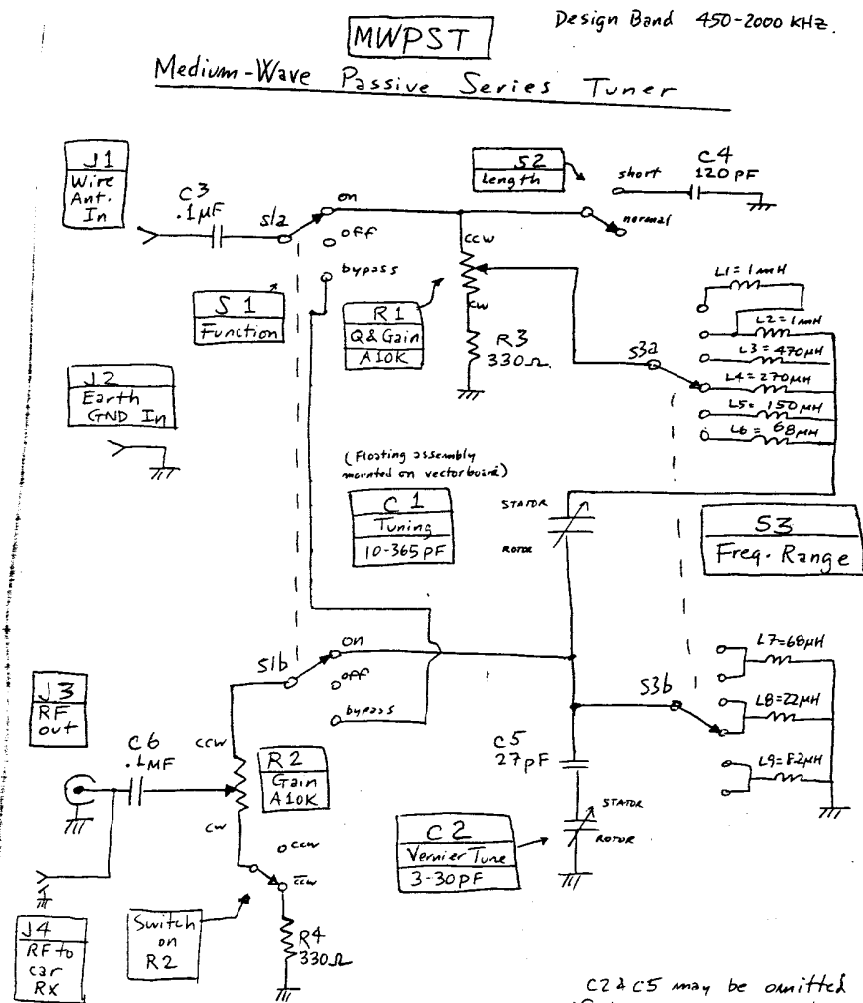 Design Band 450-2000 KHz.
MWPST
Medium-Wave Passive Series Tuner
J1
Wire
Ant.
In
C3
.1µF
S1a
on
off
bypass
S1
Function
S2
Length
short
normal
C4
120 pF
ccw
cw
R1
Q & Gain
A10K
R3
330Ω
S3a
L1=1mH
L2=1mH
L3=470µH
L4=270µH
L5=150µH
L6=68µH
J2
Earth
GND In
(Floating assembly
mounted on vectorboard)
C1
Tuning
10-365pF
STATOR
ROTOR
S3
Freq. Range
S1b
on
off
bypass
S3b
L7=68µH
L8=22µH
L9=8.2µH
J3
RF
out
C6
.1MF
ccw
cw
R2
Gain
A10K
C5
27pF
STATOR
ROTOR
C2
Vernier Tune
3-30pF
ccw
ccw
Switch
on
R2
R4
330Ω
J4
RF to
car
RX
C2 & C5 may be omitted